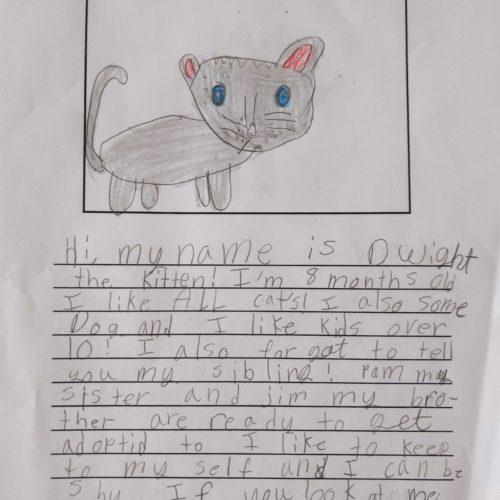 Hi, my name is Dwight
the Kitten! I'm 8 months old
I like ALL cats! I also some
Dog and I like kids over
10! I also forgot to tell
you my sibling! Pam my
sister and jim my bro-
ther are ready to get
adoptid to I like to keep
to my self and I can be
shy If you look at me